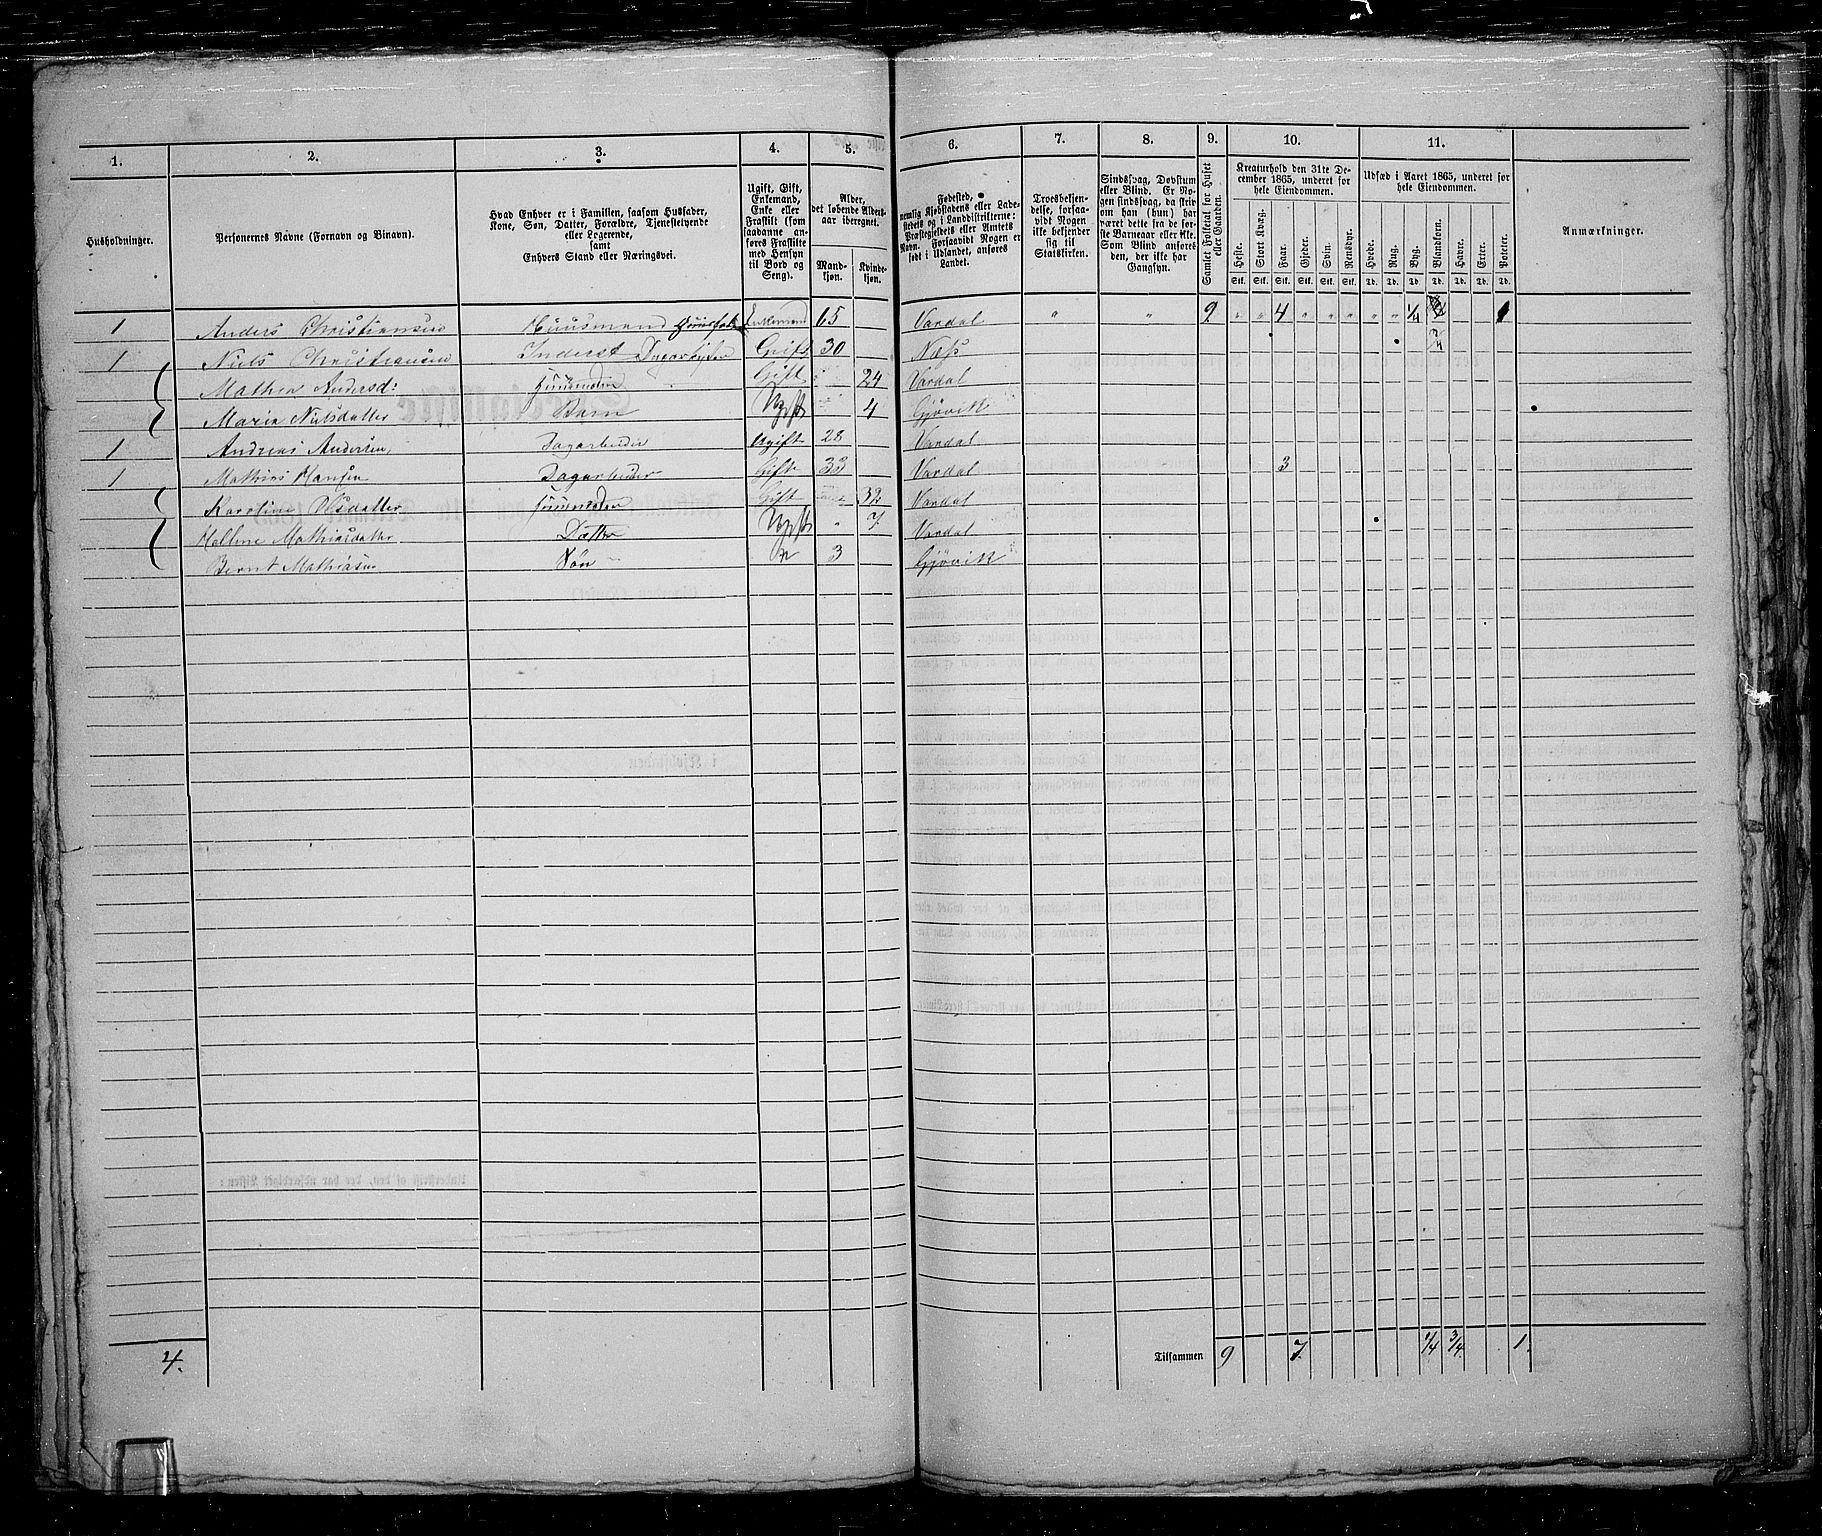 1. 2. 3. 4. 5. 6. 7. 8. 9. 10. 11.
Husholdninger.
Personernes Navne (Fornavn og Binavn).
Hvad Enhver er i Familien, saasom Husfader,
Kone, Søn, Datter, Forældre, Tjenestetyende
eller Logerende,
samt
Enhvers Stand eller Næringsvei.
Ugift, Gift,
Enkemand,
Enke eller
Fraskilt (som
saadanne an-
føres Fraskilte
med Hensyn
til Bord og
Seng).
Alder,
det løbende Alders-
aar iberegnet.
Mand-
kjøn.
Kvinde-
kjøn.
Fødested,
nemlig Kjøbstadens eller Lade-
stedets og i Landdistrikterne:
Præstegjeldets eller Amtets
Navn. Forsaavidt Nogen er
født i Udlandet, anføres
Landet.
Troesbekjen-
delse, forsaa-
vidt Nogen
ikke bekjender
sig til
Statskirken.
Sindssvag, Døvstum
eller Blind. Er No-
gen sindssvag, da skriv
om han (hun) har
været dette fra de før-
ste Barneaar eller ikke.
Som Blind anføres
den, der ikke har
Gangsyn.
Samlet Folketal for Huset
eller Gaarden.
Kreaturhold den 31te De-
cember 1865, underet for
hele Eiendommen.
Heste. Stort Kvæg. Faar. Gjeder. Svin. Rensdyr.
Stk. Stk. Stk. Stk. Stk. Stk.
Udsæd i Aaret 1865, underet for
hele Eiendommen.
Hvede. Rug. Byg. Blandkorn. Havre. Erter. Poteter.
Td. Td. Td. Td. Td. Td. Td.
Anmærkninger.
1 Anders Christiansen Huusmand Huusfader Enkemand 65 Vardal " " 9 " " 4 " " " " " 1/4 1
1 Niels Christiansen Inderst Dagarbeider Gift 30 Næss
Mathea Andersd: Gift 24 Vardal
Marie Nilsdatter Barn Ugift 4 Gjøvik
1 Andreas Andersen Dagarbeider Ugift 28 Vardal
1 Mathias Hansen Dagarbeider Gift 33 Vardal 3
Karoline Olsdatter Gift 32 Vardal
Helline Mathiasdatter Datter Ugift " 7 Vardal
Bernt Mathiasen Søn " 3 Gjøvik
4. Tilsammen 9 7 1/4 3/4 1.